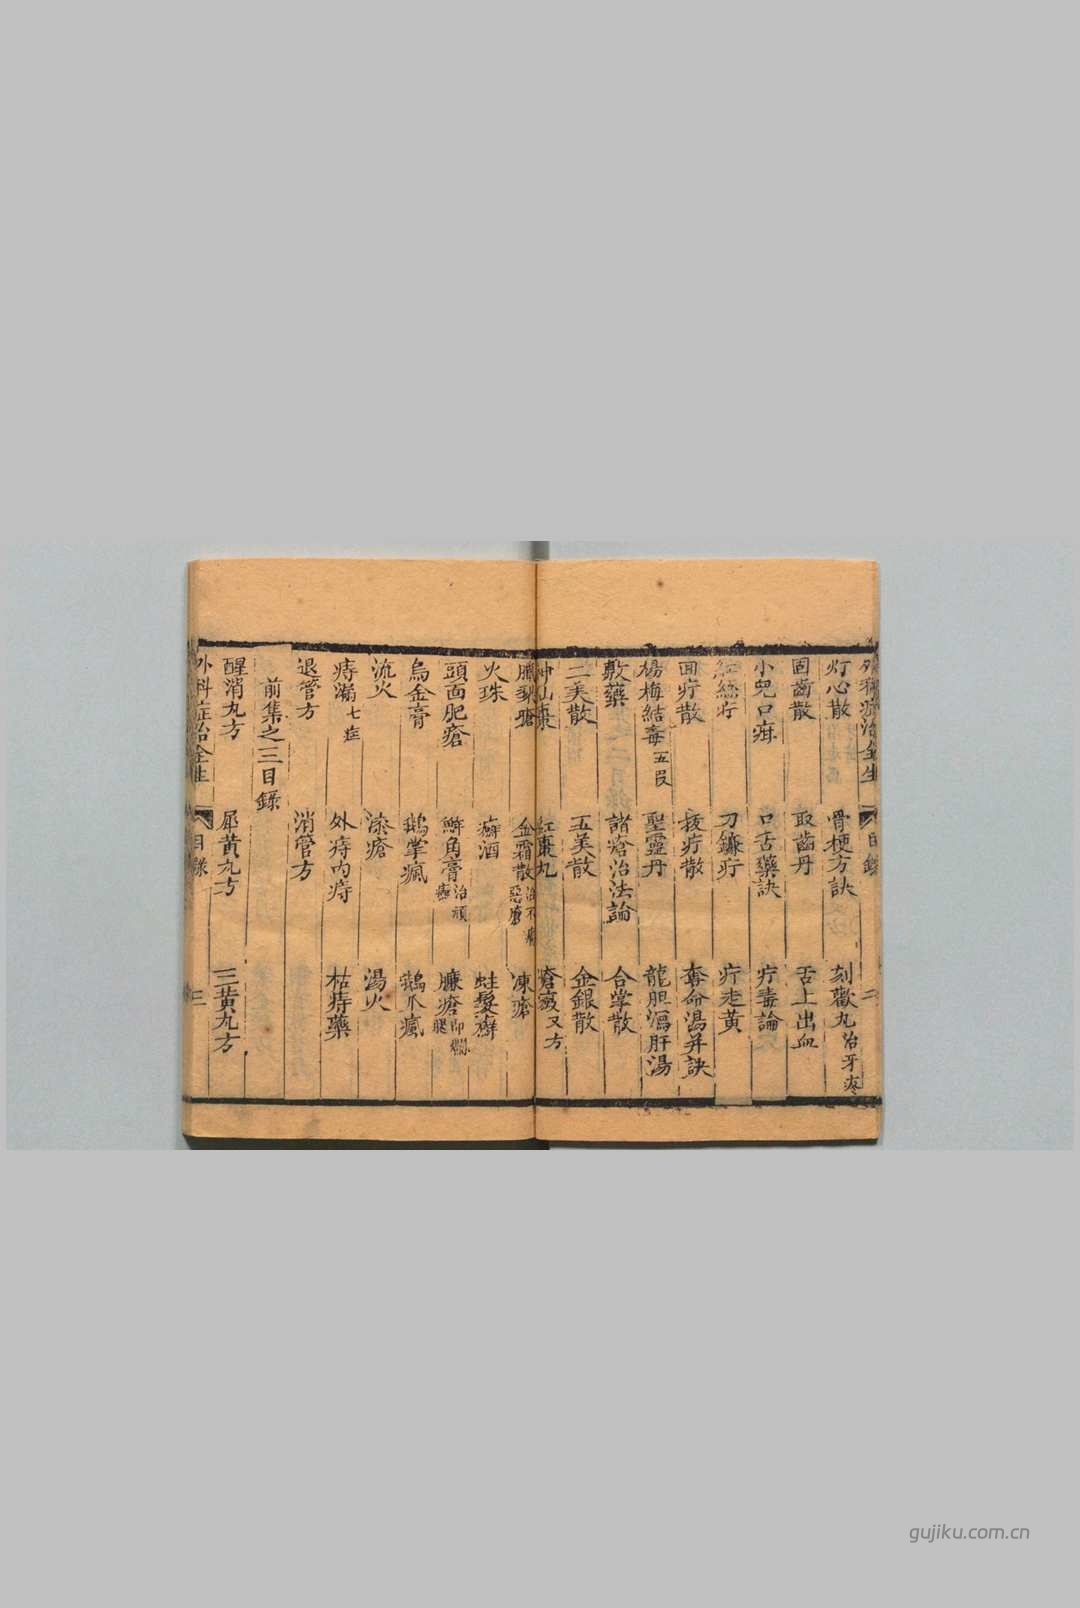 外科症治全生 目錄 二
灯心散 骨梗方訣 刻歡丸治牙疼
固齒散 取齒丹 舌上出血
小兒口疳 口舌藥訣 疔毒論
紅絲疔 刀鐮疔 疔走黃
回疔散 拔疔散 奪命湯并訣
楊梅結毒 五叚 聖靈丹 龍胆瀉肝湯
敷藥 諸瘡治法論 合掌散
二美散 五美散 金銀散
紅棗丸 瘡癬又方
臘梨瘡 金霜散治不瘡惡瘡 凍瘡
火珠 癬酒 蛀髮癬
頭面肥瘡 觧角膏治頑癬 臁瘡即爛腿
烏金膏 鵝掌瘋 鵝爪瘋
流火 漆瘡 湯火
痔漏七症 外痔內痔 枯痔藥
退管方 消管方
前集之三目錄
醒消丸方 犀黃丸方 三黃丸方
外科症治全生 目錄 三
gujiku.com.cn